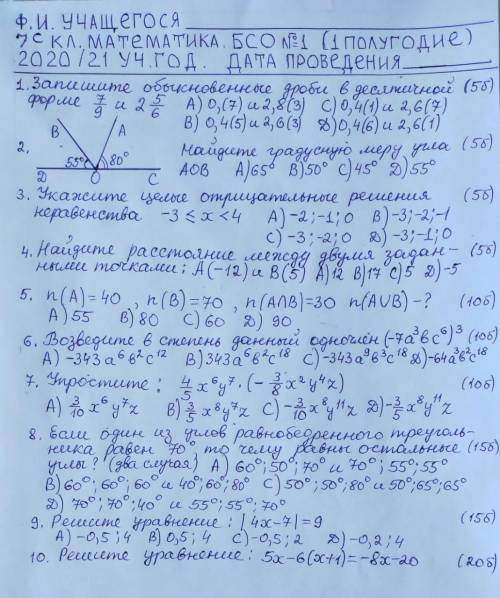 Ф. И. УЧАЩЕГОСЯ
7С КЛ. МАТЕМАТИКА. БСО №1 (1 ПОЛУГОДИЕ)
2020/21 УЧ. ГОД. ДАТА ПРОВЕДЕНИЯ
1. Запишите обыкновенные дроби в десятичной (5б)
форме 7/9 и 2 5/6 А) 0,(7) и 2,8(3) С) 0,4(1) и 2,6(7)
В) 0,4(5) и 2,6(3) Д) 0,4(6) и 2,6(1)
2. В А 55° 80° D O C Найдите градусную меру угла (5б)
АОВ А) 65° В) 50° С) 45° Д) 55°
3. Укажите целые отрицательные решения (5б)
неравенства -3 ≤ х < 4 А) -2; -1; 0 В) -3; -2; -1
С) -3; -2; 0 Д) -3; -1; 0
4. Найдите расстояние между двумя задан- (5б)
ными точками: А(-12) и В(5) А) 12 В) 17 С) 5 Д) -5
5. n(A)=40, n(B)=70, n(A∩B)=30 n(A∪B)-? (10б)
А) 55 В) 80 С) 60 D) 90
6. Возведите в степень данный одночлен (-7a³bc⁶)³ (10б)
А) -343a⁶b²c¹² В) 343a⁶b²c¹⁸ С) -343a⁹b³c¹⁸ Д) -64a³b²c¹⁸
7. Упростите: 4/5 x⁶y⁷ · (-3/8 x²y⁴z) (10б)
А) 3/10 x⁶y⁷z В) 3/5 x⁸y⁷z С) -3/10 x⁸y¹¹z Д) -3/5 x⁸y¹¹z
8. Если один из углов равнобедренного треуголь-
ника равен 70°, то чему равны остальные (15б)
углы? (два случая) А) 60°; 50°; 70° и 70°; 55°; 55°
В) 60°; 60°; 60° и 40°; 60°; 80° С) 50°; 50°; 80° и 50°; 65°; 65°
Д) 70°; 70°; 40° и 55°; 55°; 70°
9. Решите уравнение: |4x-7|=9 (15б)
А) -0,5; 4 В) 0,5; 4 С) -0,5; 2 Д) -0,2; 4
10. Решите уравнение: 5x-6(x+1)=-8x-20 (20б)